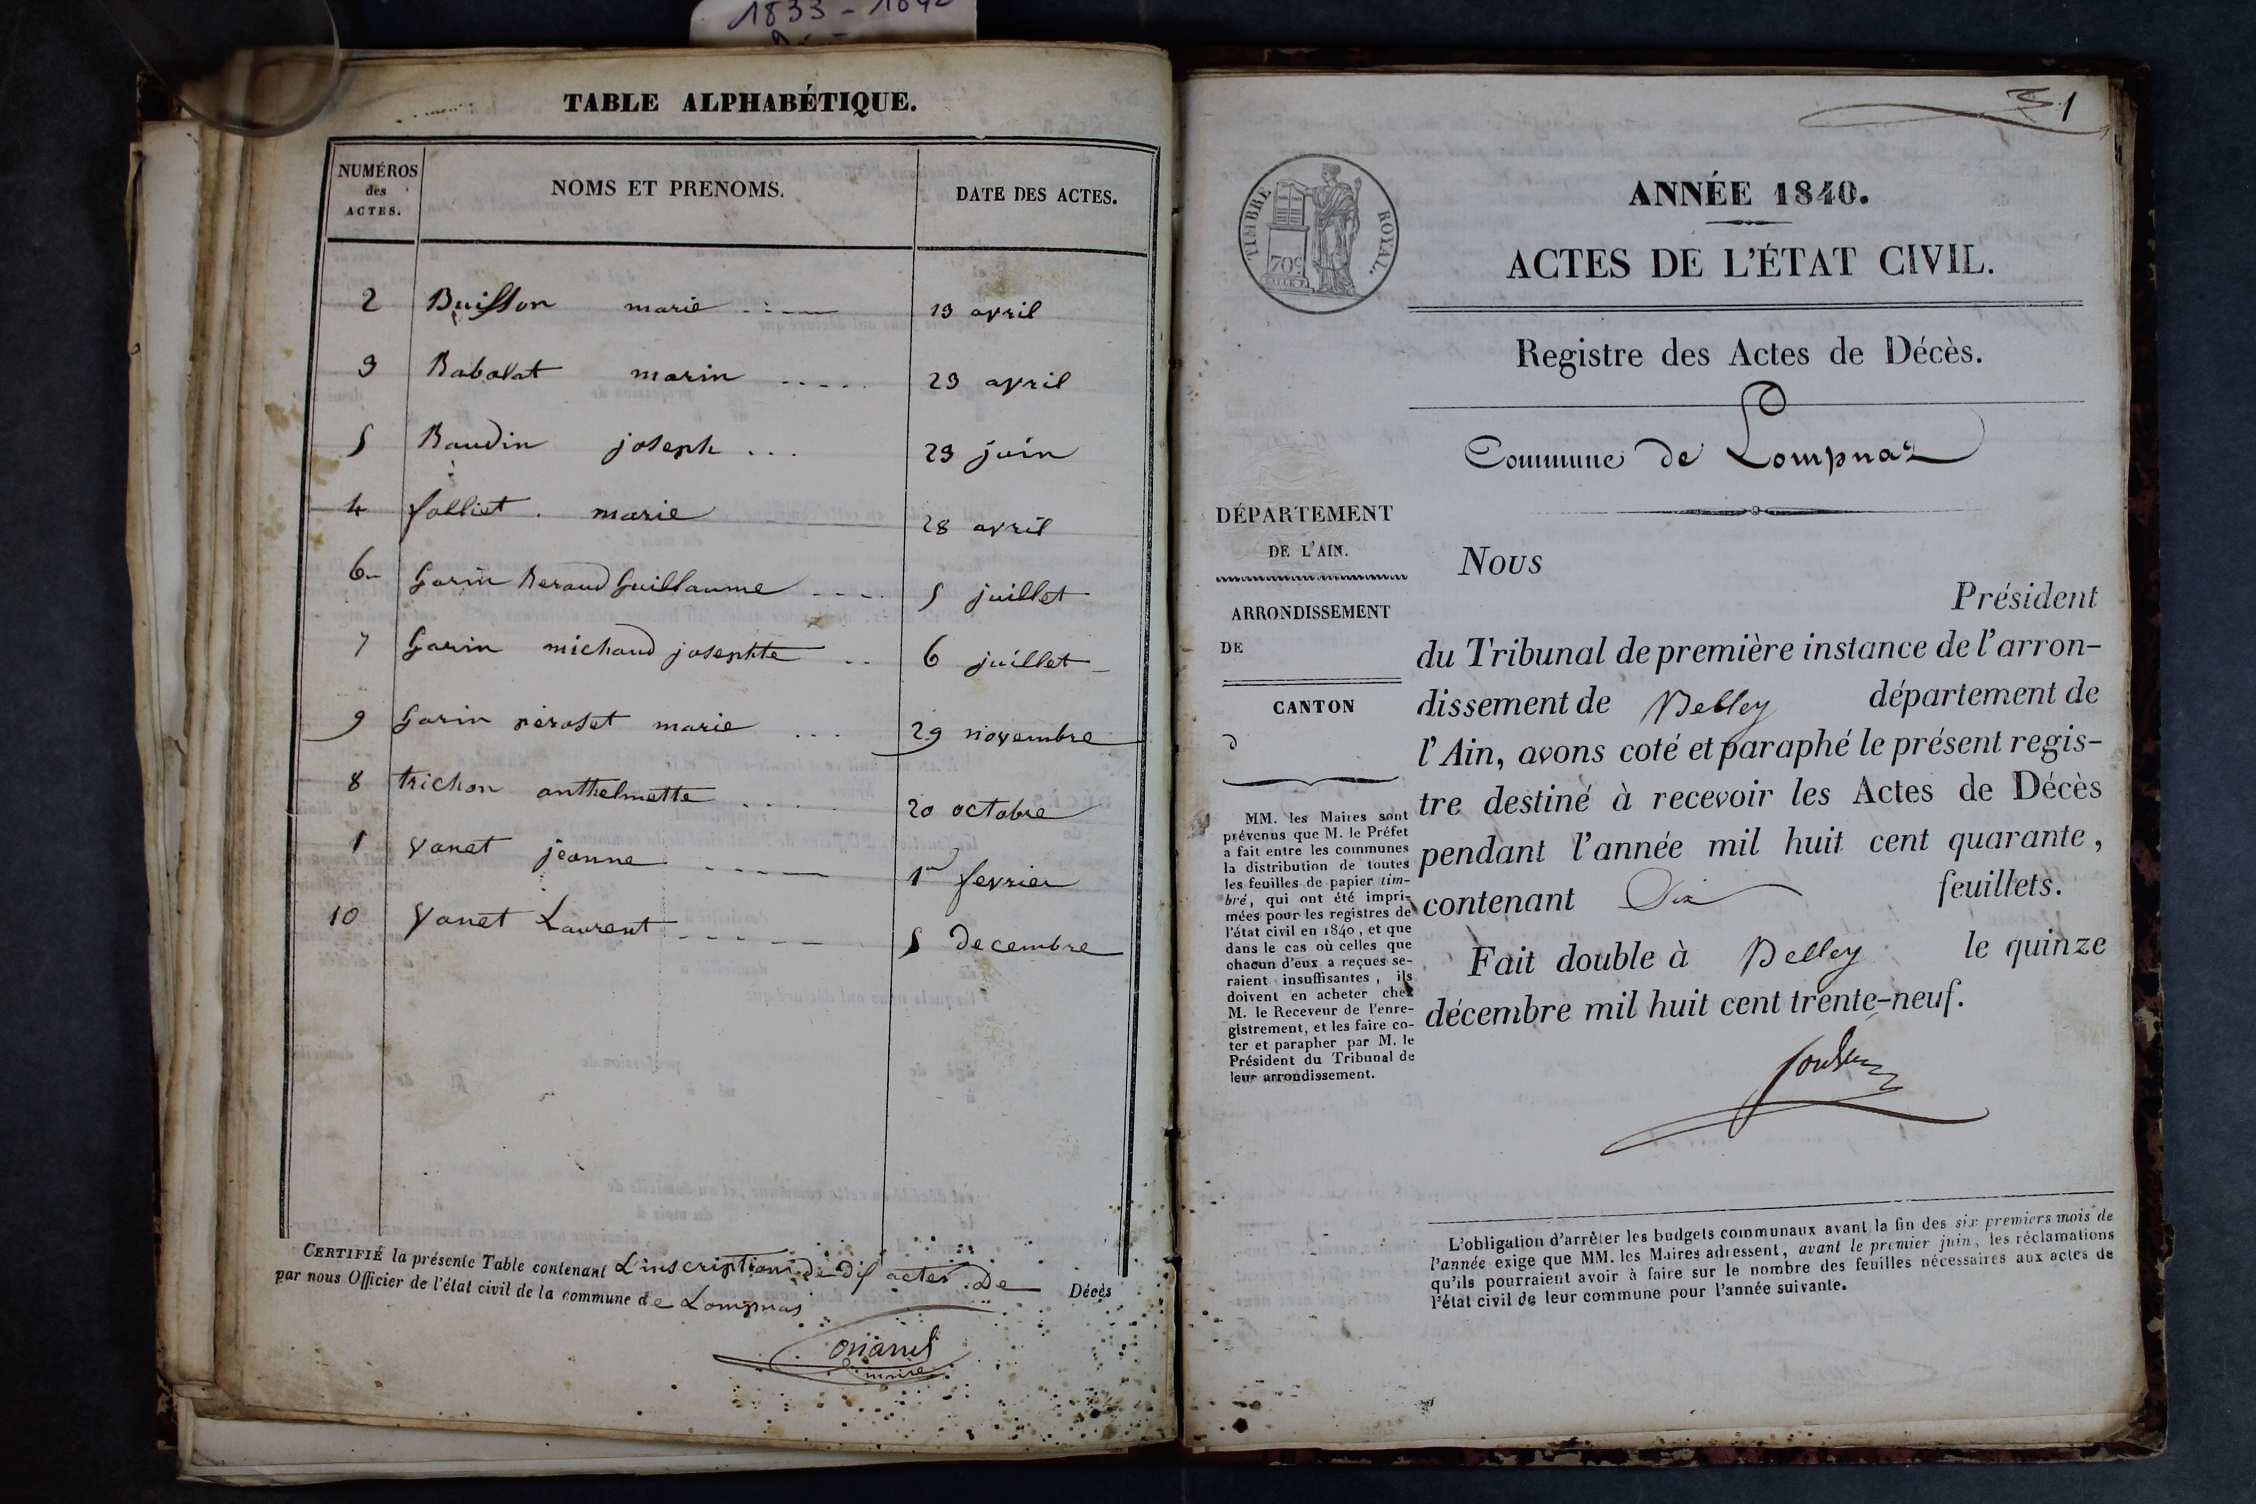 1833 - 1842
TABLE ALPHABÉTIQUE.
NUMÉROS des ACTES.
NOMS ET PRENOMS.
DATE DES ACTES.
2 Buisson marie 13 avril
3 Babolat marin 23 avril
5 Baudin joseph 23 juin
4 folliet marie 28 avril
6 Garin Beraud Guillaume 5 juillet
7 Garin michaud josephte 6 juillet
9 Garin péroset marie 29 novembre
8 trichon anthelmette 20 octobre
1 Vanet jeanne 1er fevrier
10 Vanet Laurent 5 decembre
CERTIFIÉ la présente Table contenant L'inscription de dix actes de Décès
par nous Officier de l'état civil de la commune de Lompnas
maire
1
TIMBRE ROYAL.
70c
ANNÉE 1840.
ACTES DE L'ÉTAT CIVIL.
Registre des Actes de Décès.
Commune de Lompnaz
DÉPARTEMENT
DE L'AIN.
ARRONDISSEMENT
DE
CANTON
d
MM. les Maires sont
prévenus que M. le Préfet
a fait entre les communes
la distribution de toutes
les feuilles de papier tim-
bré, qui ont été impri-
mées pour les registres de
l'état civil en 1840, et que
dans le cas où celles que
chacun d'eux a reçues se-
raient insuffisantes, ils
doivent en acheter chez
M. le Receveur de l'enre-
gistrement, et les faire co-
ter et parapher par M. le
Président du Tribunal de
leur arrondissement.
Nous
Président
du Tribunal de première instance de l'arron-
dissement de Belley département de
l'Ain, avons coté et paraphé le présent regis-
tre destiné à recevoir les Actes de Décès
pendant l'année mil huit cent quarante,
contenant Six feuillets.
Fait double à Belley le quinze
décembre mil huit cent trente-neuf.
L'obligation d'arrêter les budgets communaux avant la fin des six premiers mois de
l'année exige que MM. les Maires adressent, avant le premier juin, les réclamations
qu'ils pourraient avoir à faire sur le nombre des feuilles nécessaires aux actes de
l'état civil de leur commune pour l'année suivante.